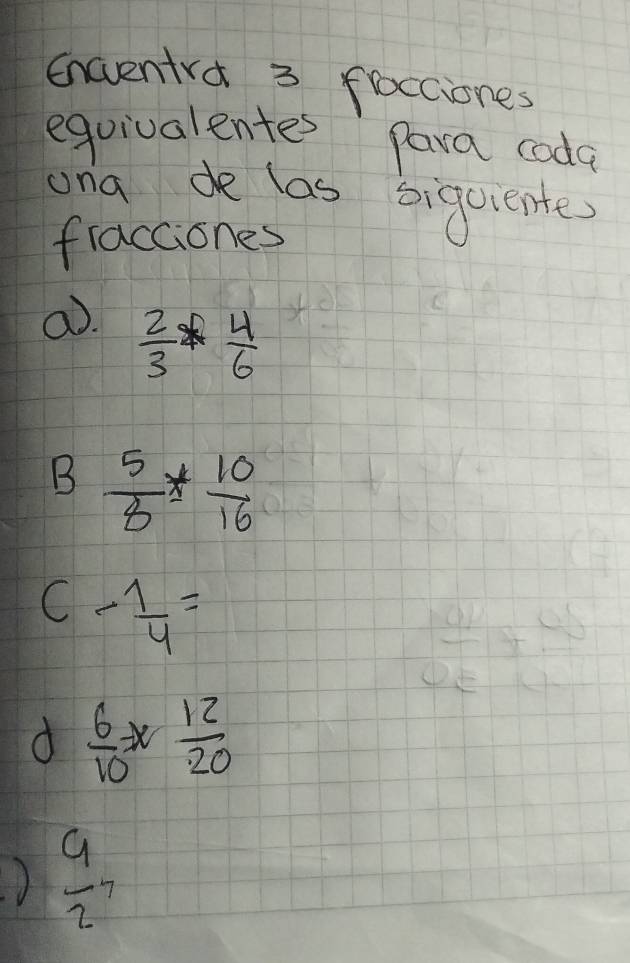 Encuentra 3 fracciones
equivalentes para cada
una de las siguientes
fracciones
a). 2/3 * 4/6
B 5/8 * 10/16
C - 1/4 =
d 6/10 * 12/20
) 9/2